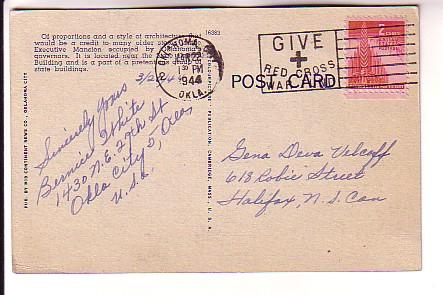 16383
Of proportions and a style of architecture that
would be a credit to many older
Executive Mansion occupied by Oklahoma's
governors. It is located near the
Building and is part of a pretentious group of
state buildings.
OKLAHOMA
PM
1944
OKLA.
GIVE
+
RED CROSS
WAR
2 CENTS
POST CARD
3/2/44
Sincerely Yours
Bernice White
1430 N.E. 29th St
Okla City 5, Okla
U.S.A.
Gena Deva Velcoff
618 Robie Street
Halifax, N.S. Can
PUB. BY MID CONTINENT NEWS CO., OKLAHOMA CITY
PUBLICATION, CAMBRIDGE, MASS., U. S. A.